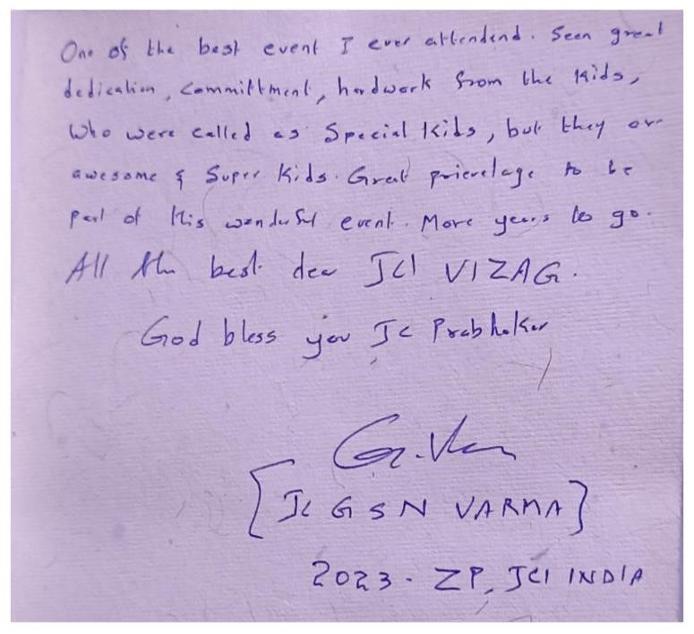 One of the best event I ever attendend. Seen great
dedication, committment, hardwork from the kids,
Who were called as Special Kids, but they are
awesome & Super Kids. Great prievelage to be
part of this wonderful event. More years to go.
All the best dear JCI VIZAG.
God bless you JC Prabhakar
G. Varma
[JC G S N VARMA]
2023 - ZP, JCI INDIA